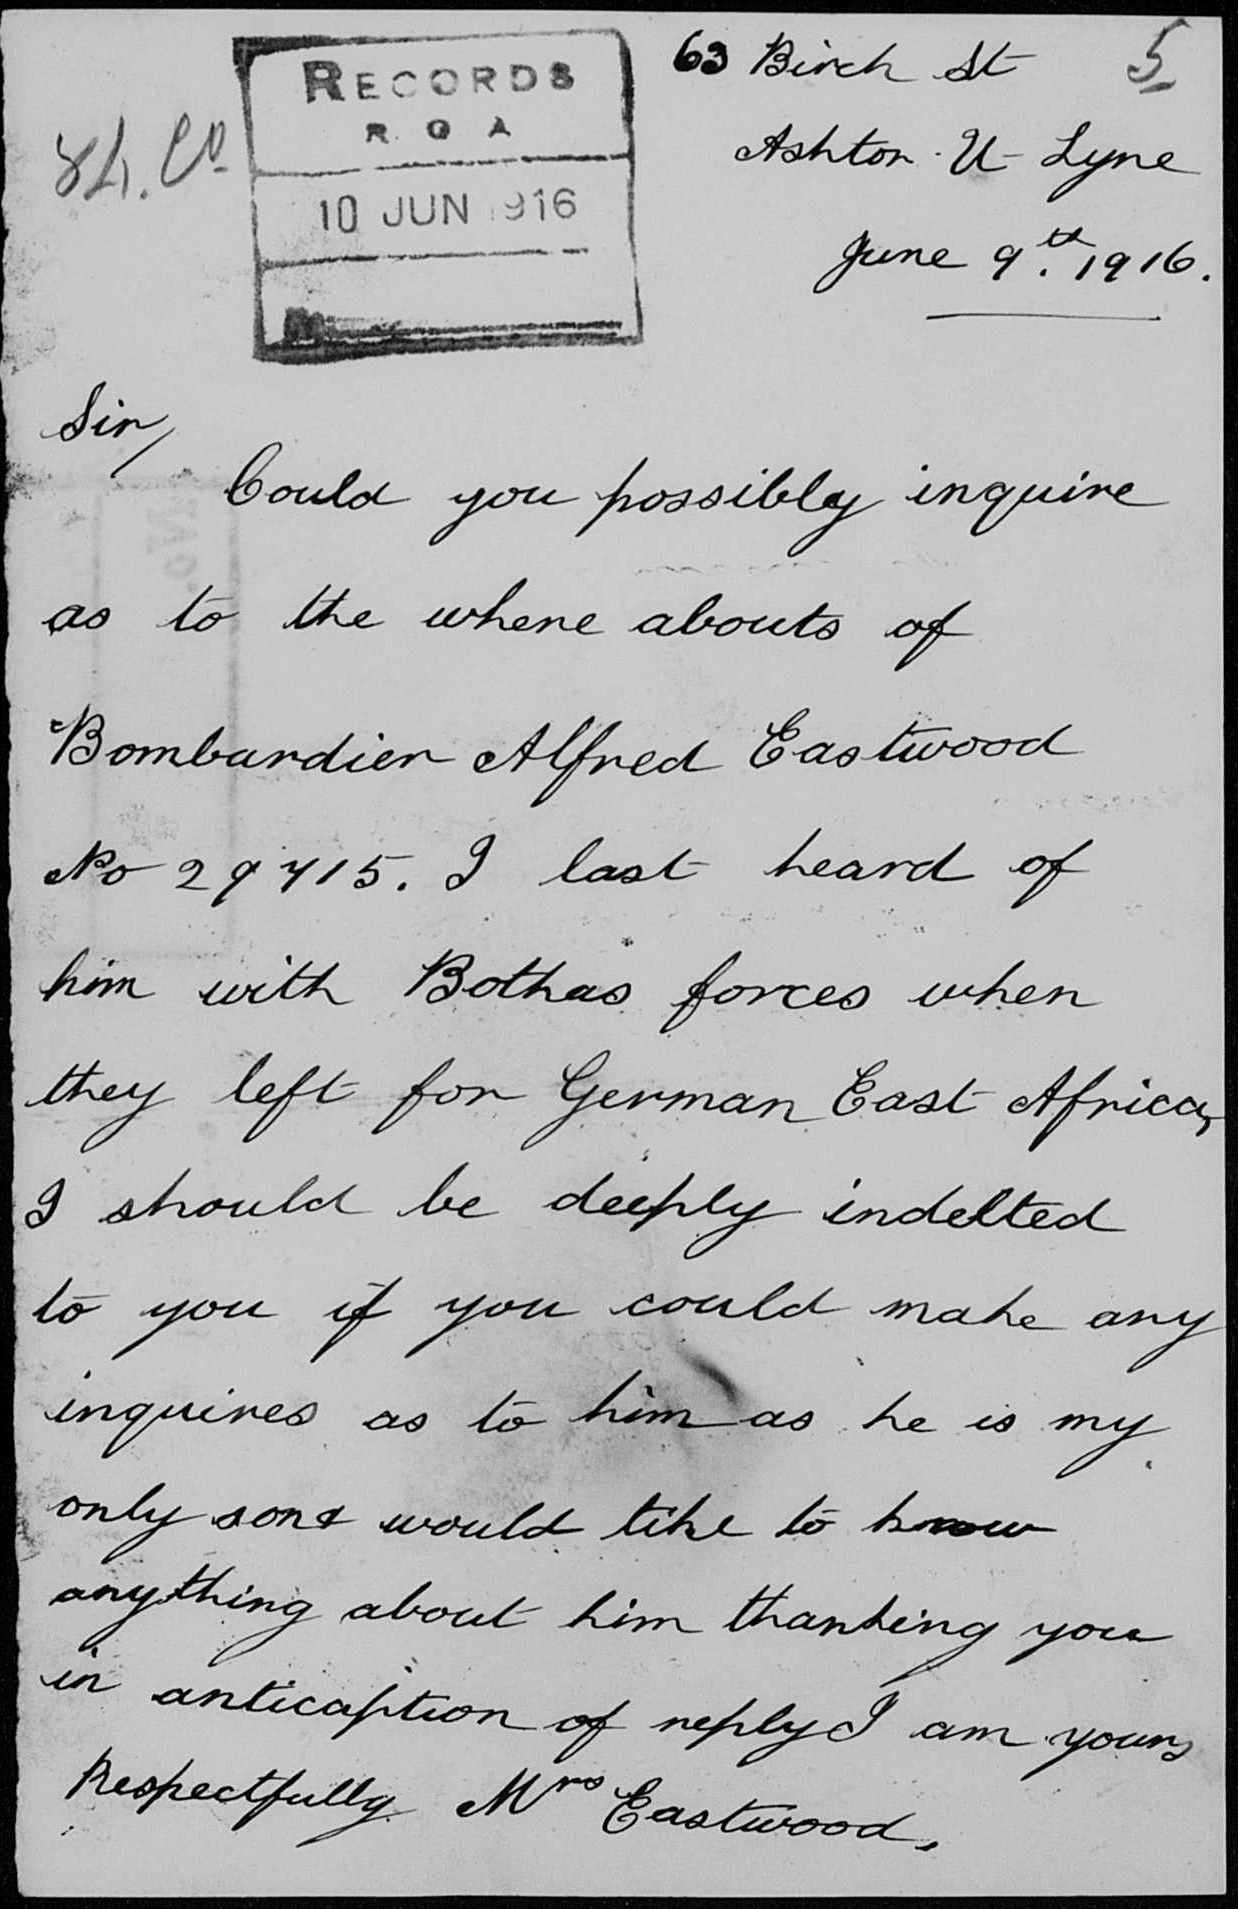 63 Birch St
5
Ashton-U-Lyne
June 9th. 1916.
RECORDS
R G A
10 JUN 1916
Sir,
Could you possibly inquire
as to the where abouts of
Bombardier Alfred Eastwood
No 29715. I last heard of
him with Bothas forces when
they left for German East Africa,
I should be deeply indebted
to you if you could make any
inquires as to him as he is my
only son & would like to know
anything about him thanking you
in anticaption of reply I am yours
Respectfully Mrs Eastwood.